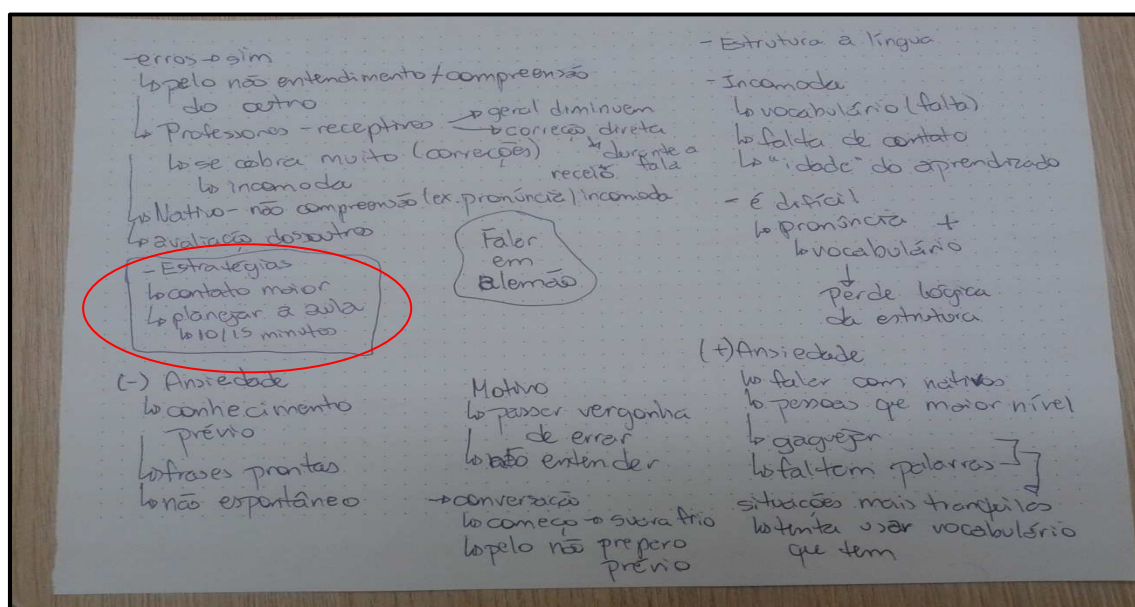 -erros→sim
↳pelo não entendimento/compreensão
do outro
↳Professores-receptivos →geral diminuem
→correção direta
↳durante a
fala
↳se cobra muito (correções)
receio
↳incomoda
↳Nativo-não compreensão (ex.pronúncia) incomoda
↳avaliação dos outros
-Estratégias
↳contato maior
↳planejar a aula
↳10/15 minutos
(-) Ansiedade
↳conhecimento
prévio
↳frases prontas
↳não espontâneo
Falar
em
alemão
Motivo
↳passar vergonha
de errar
↳não entender
→conversação
↳começo→suava frio
↳pelo não preparo
prévio
-Estrutura a língua
-Incomoda
↳vocabulário (falta)
↳falta de contato
↳"idade" do aprendizado
-é difícil
↳pronúncia +
↳vocabulário
↓
perde lógica
da estrutura
(+)Ansiedade
↳falar com nativos
↳pessoas que maior nível
↳gaguejar
↳faltam palavras
situações mais tranquilas
↳tenta usar vocabulário
que tem